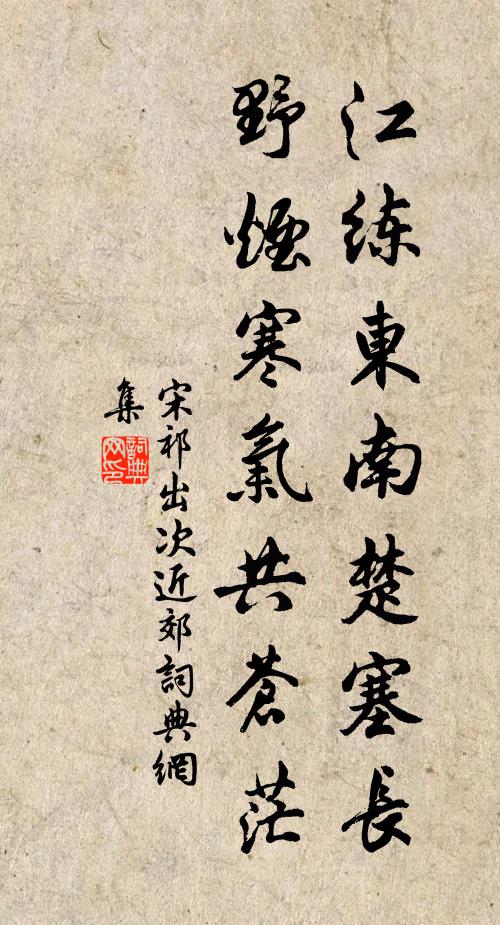 江练東南楚塞長
野煙寒氣共蒼茫
宋祁出次近郊詞典網
集
詞典网印